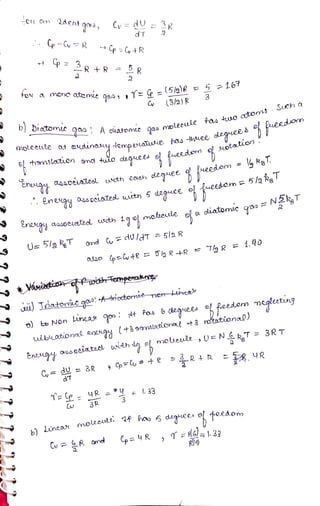 for an ideal gas, Cv = dU/dT = 3/2 R
∴ Cp - Cv = R → Cp = Cv + R
→ Cp = 3/2 R + R = 5/2 R
For a mono atomic gas, γ = Cp/Cv = (5/2)R/(3/2)R = 5/3 = 1.67
b) Diatomic gas: A diatomic gas molecule has two atoms. Such a
molecule at ordinary temperature has three degrees of freedom
of translation and two degrees of freedom of rotation.
Energy associated with each degree of freedom = 1/2 kBT.
∴ Energy associated with 5 degree of freedom = 5/2 kBT
Energy associated with 1g of molecule of a diatomic gas = N 5/2 kBT
U = 5/2 kBT and Cv = dU/dT = 5/2 R
also Cp = Cv + R = 5/2 R + R = 7/2 R = 1.40
iii) Triatomic gas: A triatomic non linear
a) Non Linear gas: it has 6 degrees of freedom neglecting
vibrational energy (+3 translational +3 rotational)
Energy associated with 1g of molecule, U = N 6/2 kBT = 3RT
Cv = dU/dT = 3R, Cp = Cv + R
γ = Cp/Cv = 4R/3R = 4/3 = 1.33
b) Linear molecule: It has 5 degrees of freedom
and Cp = 4R